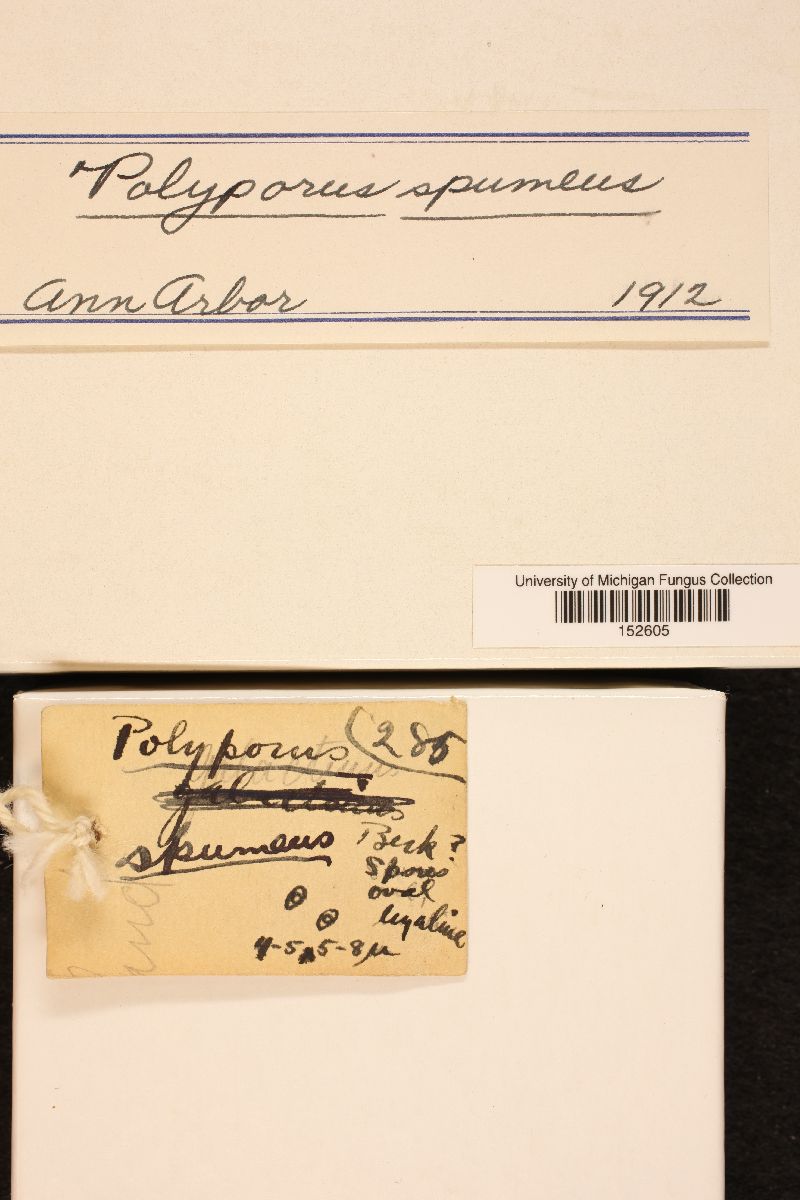 Polyporus spumeus
Ann Arbor 1912
University of Michigan Fungus Collection
152605
Polyporus (285
spumeus
Berk ?
Spores
oval
hyaline
4-5 x 5-8 µ